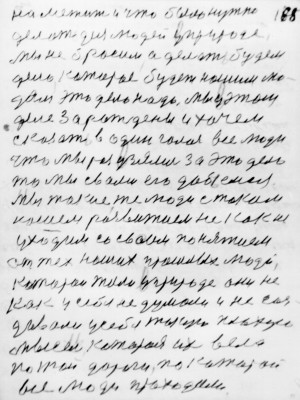 168
на метит и что было нужно
делат для людей у природе
мы не бросим а делат будем
дело катарое будет нашим лю
дям это дело надо, мы у этом
деле зарождены и хочем
сказат в один голас все люди
что мы раз узяли за это дело
то мы сваво его дабемся
мы такие же люди с таким
нашем развитием не как и
уходим со своим понятием
от тех наших прошлых людей,
катораи жили у природе они не
как у себе не думали и не саз
дывали у себе такую плахую
мысел, катарая их вела
по той дороги, по катарай
все люди праходили